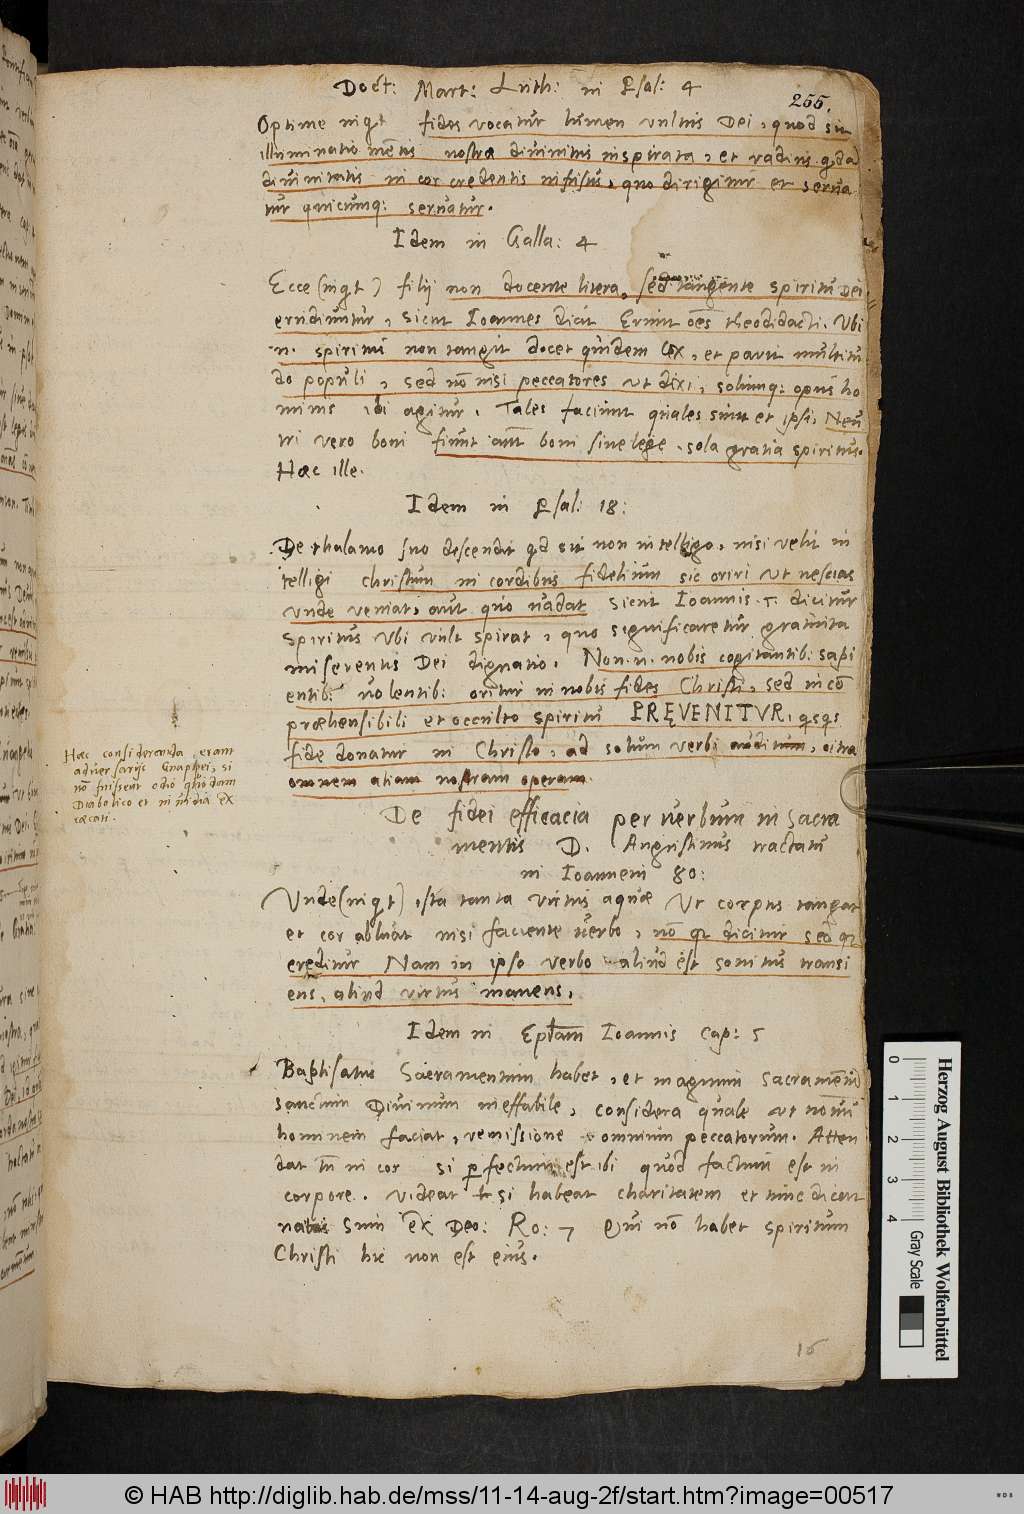 255.
Doct: Mart: Luth: in Psal: 4
Optime inqt fides vocatur lumen vultus Dei, quod sit
illuminatio mentis nostræ divinitus inspirata, et radius qda
divinitatis in cor credentis infusus, quo dirigitur et serva
tur quicunq: servatur.
Idem in Galla: 4
Ecce (inqt) filij non docente litera, sed tangente spiritu Dei
erudiuntur, sicut Ioannes dicit Erunt oēs theodidacti. Ubi
n. spiritus non tangit docet quidem lex, et parit multitu
do populi, sed nō nisi peccatores ut dixi, solumq: opus ho
minis ibi agitur. Tales faciunt quales sunt et ipsi, Neu
tri vero boni fiunt aut boni sine lege, sola gratia spiritus.
Hæc ille.
Idem in Psal: 18:
De thalamo suo descendat qd sit non intelligo, nisi velit in
telligi christum in cordibus fidelium sic oriri ut nescias
unde veniat, aut quo vadat sicut Ioannis .3. dicitur
Spiritus ubi vult spirat, quo significaretur gratuita
miserentis Dei dignatio. Non .n. nobis cogitantib: sapi
entib: volentib: oritur in nobis fides Christi, sed incō
præhensibili et occulto spiritu PRĘVENITVR, qsqs
fide donatur in Christo, ad solum verbi auditum, citra
omnem aliam nostram operam.
Hæc consideranda erant
adversarijs Gnappei, si
nō fuissent odio quodam
Diabolico et invidia ex
cæcati.
De fidei efficacia per verbum in Sacra
mentis D. Augustinus tractatu
in Ioannem 80:
Unde (inqt) ista tanta virtus aquæ Ut corpus tangat
et cor abluat nisi faciente verbo, nō qt dicitur sed qt
creditur Nam in ipso verbo aliud est sonitus transi
ens, aliud virtus manens.
Idem in Eplam Ioannis cap: 5
Baptisatus Sacramentum habet, et magnum sacramentū
sanctum Divinum ineffabile, considera quale ut novū
hominem faciat, remissione omnium peccatorum. Atten
dat tn in cor si perfectum est ibi quod factum est in
corpore. Videat si habeat charitatem et tunc dicat
natus sum Ex Deo: Ro: 7 Qui nō habet spiritum
Christi hic non est eius.
16
Herzog August Bibliothek Wolfenbüttel
0 1 2 3 4
Gray Scale
© HAB http://diglib.hab.de/mss/11-14-aug-2f/start.htm?image=00517